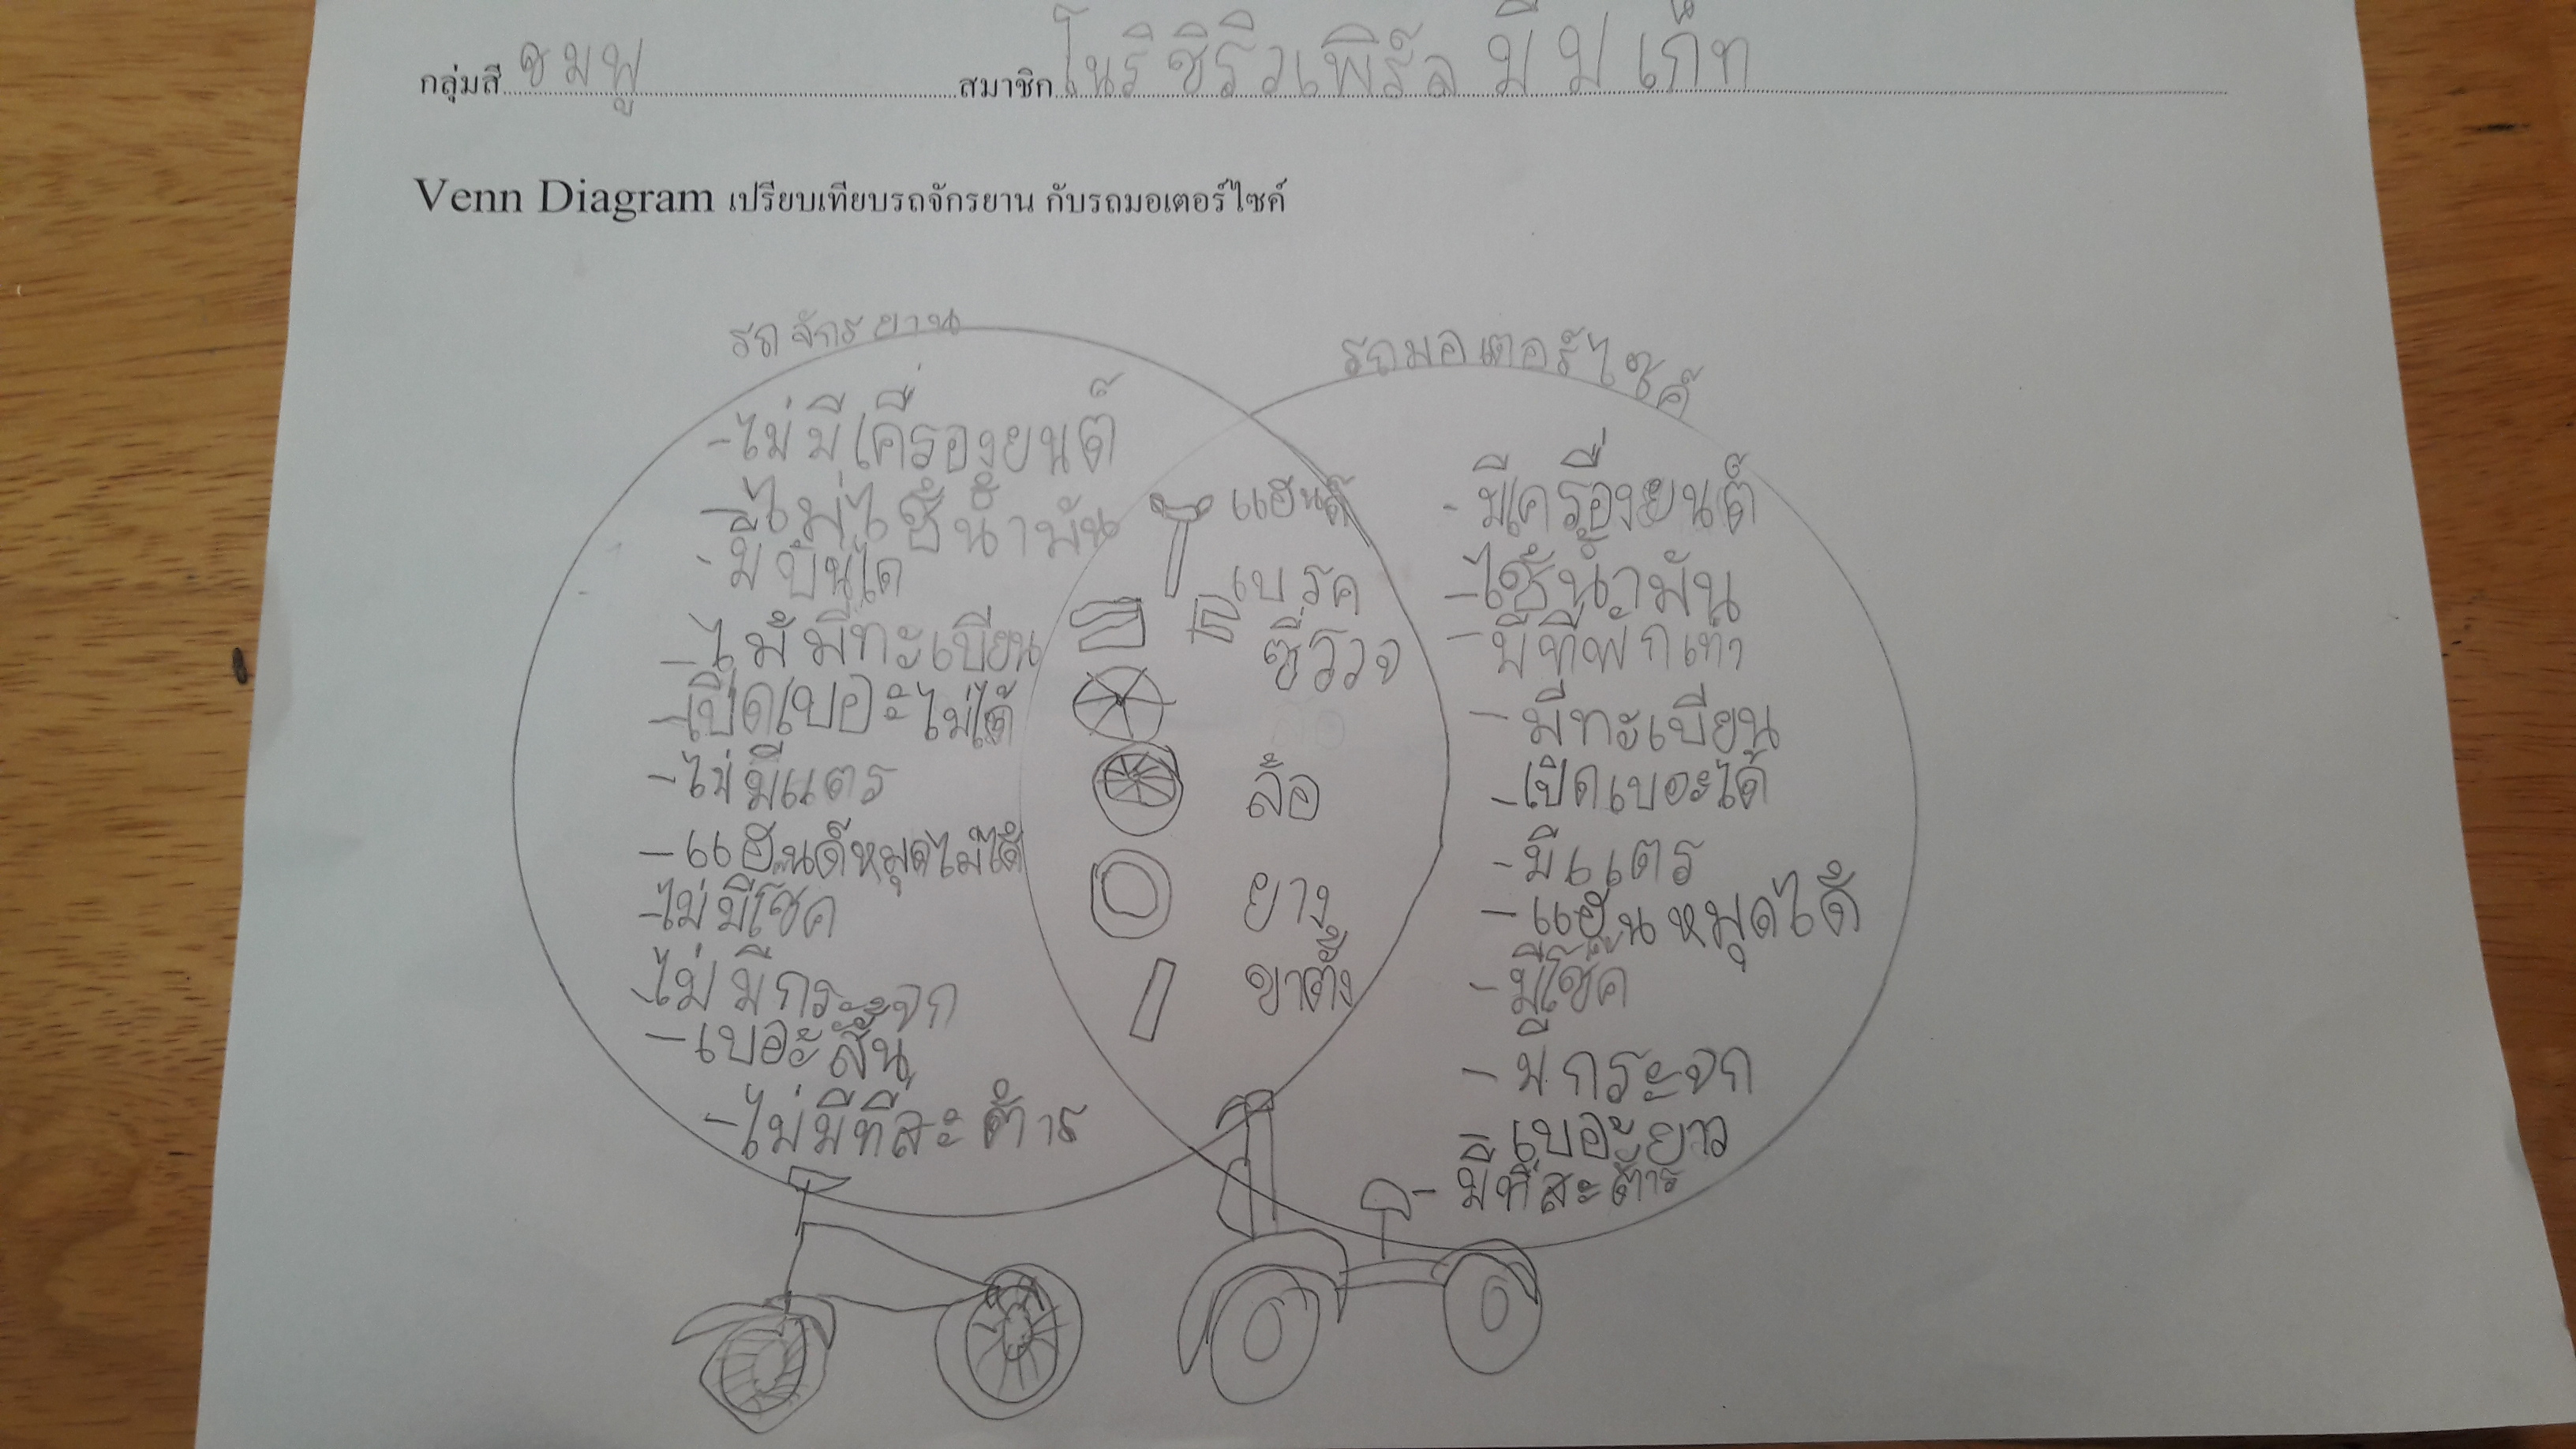 กลุ่มสี ชมพู สมาชิก โนริ ชิริว เพิร์ล มีม เก็ท
Venn Diagram เปรียบเทียบรถจักรยาน กับรถมอเตอร์ไซค์
รถจักรยาน
-ไม่มีเคื่รองยนต์
-ไม่ไช้น้ำมัน
-มีบันได
-ไม่มีทะเบียน
-เปิดเบอะไม่ได้
-ไม่มีแตร
-แฮนด์หมุดไม่ได้
-ไม่มีโช๊ค
-ไม่มีกระจก
-เบอะสั้น
-ไม่มีทีสะต๋าร
แฮนด์
เบรค
ซี่รวจ
ล้อ
ยาง
ขาตั้ง
รถมอเตอร์ไซค์
-มีเครื่องยนต์
-ไช้น้ำมัน
-มีทีพักเท้า
-มีทะเบียน
-เปิดเบอะได้
-มีแตร
-แฮนหมุดได้
-มีโช๊ค
-มีกระจก
-เบอะยาว
-มีทีสะต๋าร